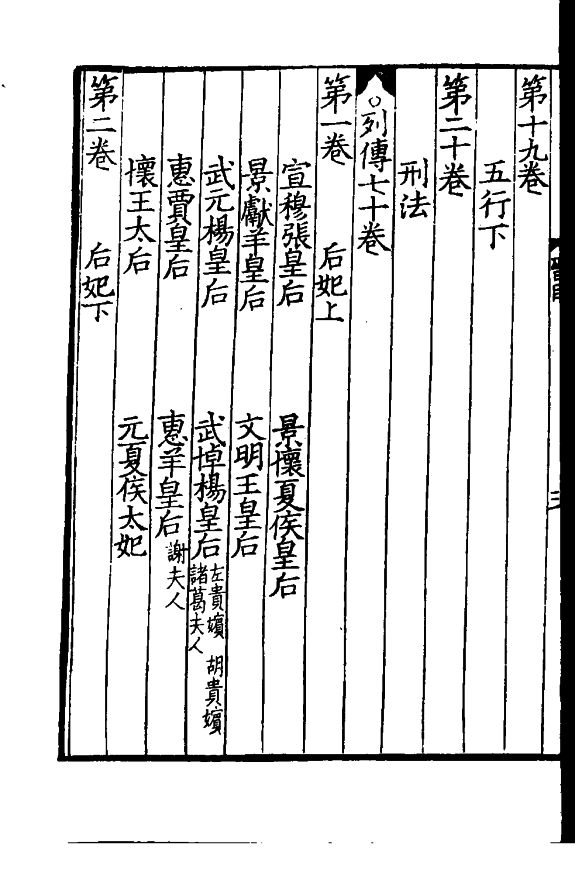 第十九卷
五行下
第二十卷
刑法
○列傳七十卷
第一卷 后妃上
宣穆張皇后 景懷夏侯皇后
景獻羊皇后 文明王皇后
武元楊皇后 武悼楊皇后 左貴嬪 胡貴嬪 諸葛夫人
惠賈皇后 惠羊皇后 謝夫人
懷王太后 元夏侯太妃
第二卷 后妃下